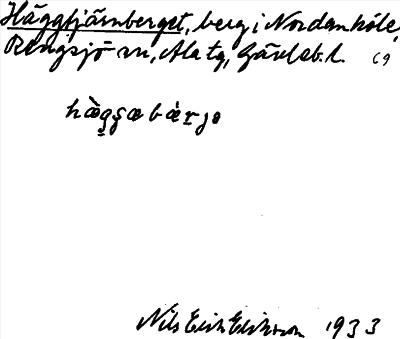 Häggtjärnberget, berg i Nordanhöle,
Rengsjö sn, Ala tg, Gävleb. l. 69
hæ̀gg̣æbæ̀rjə
Nils Erik Eriksson 1933